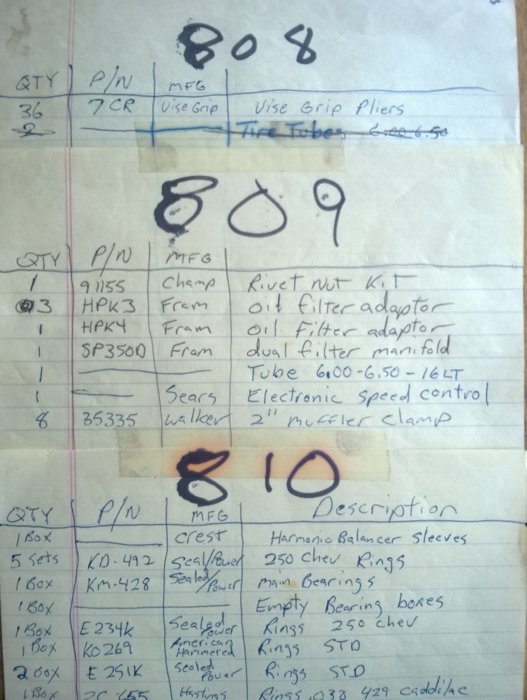 808
QTY P/N MFG
36 7CR Vise Grip Vise Grip Pliers
2 Tire Tubes 6.00-6.50
809
QTY P/N MFG
1 91155 Champ Rivet Nut Kit
3 HPK3 Fram oil filter adaptor
1 HPK4 Fram oil filter adaptor
1 SP350D Fram dual filter manifold
1 Tube 6.00-6.50-16LT
1 Sears Electronic speed control
8 35335 Walker 2" muffler clamp
810
QTY P/N MFG Description
1 Box Crest Harmonic Balancer Sleeves
5 Sets KD-492 Seal/Power 250 Chev Rings
1 Box Km-428 Sealed/Power main Bearings
1 Box Empty Bearing boxes
1 Box E234k Sealed Power Rings 250 chev
1 Box KO269 American Hammered Rings STD
2 Box E251K Sealed Power Rings STD
1 Box Hastings Rings 429 caddilac